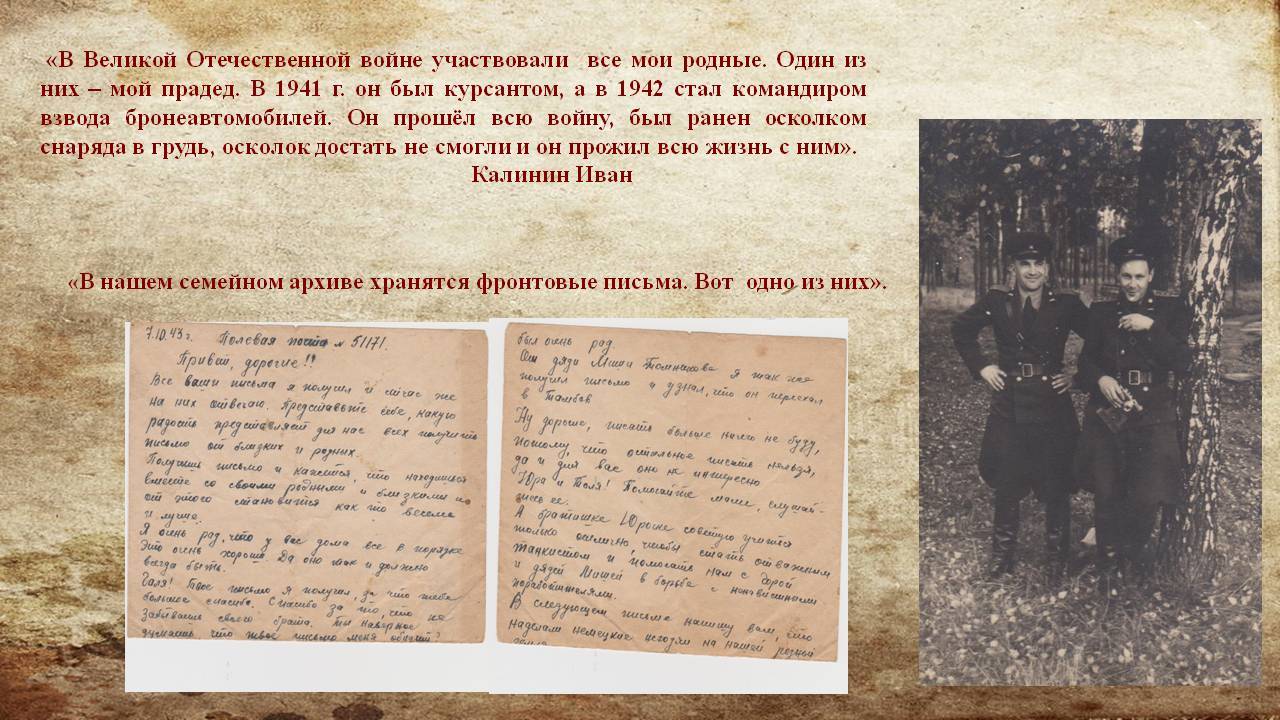 «В Великой Отечественной войне участвовали все мои родные. Один из
них – мой прадед. В 1941 г. он был курсантом, а в 1942 стал командиром
взвода бронеавтомобилей. Он прошёл всю войну, был ранен осколком
снаряда в грудь, осколок достать не смогли и он прожил всю жизнь с ним».
Калинин Иван
«В нашем семейном архиве хранятся фронтовые письма. Вот одно из них».
7.10.43 г. Полевая почта № 51171.
Привет, дорогие!!
Все ваши письма я получил и сейчас же
на них отвечаю. Представьте себе, какую
радость представляет для нас всех получить
письмо от близких и родных.
Получишь письмо и кажется, что находишься
вместе со своими родными и близкими и
от этого становится как то веселее
и лучше.
Я очень рад, что у вас дома все в порядке
Это очень хорошо. Да оно так и должно
всегда быть.
Галя! Твое письмо я получил, за что тебе
большое спасибо. Спасибо за то, что не
забываешь своего брата. Ты наверное
думаешь что твое письмо меня
был очень рад.
От дяди Миши я так же
получил письмо и узнал, что он переехал
в Тамбов
Ну дорогие, писать больше ничего не буду,
потому, что остальное писать нельзя,
да и для вас оно не интересно
Юра и Толя! Помогайте маме, слушай-
тесь ее.
А братишке Юрочке советую учится
только отлично, чтобы стать отважным
танкистом и помогать нам с
и дядей Мишей в борьбе с ненавистными
поработителями.
В следующем письме напишу вам, что
наделали немецкие изверги на нашей родной
земле